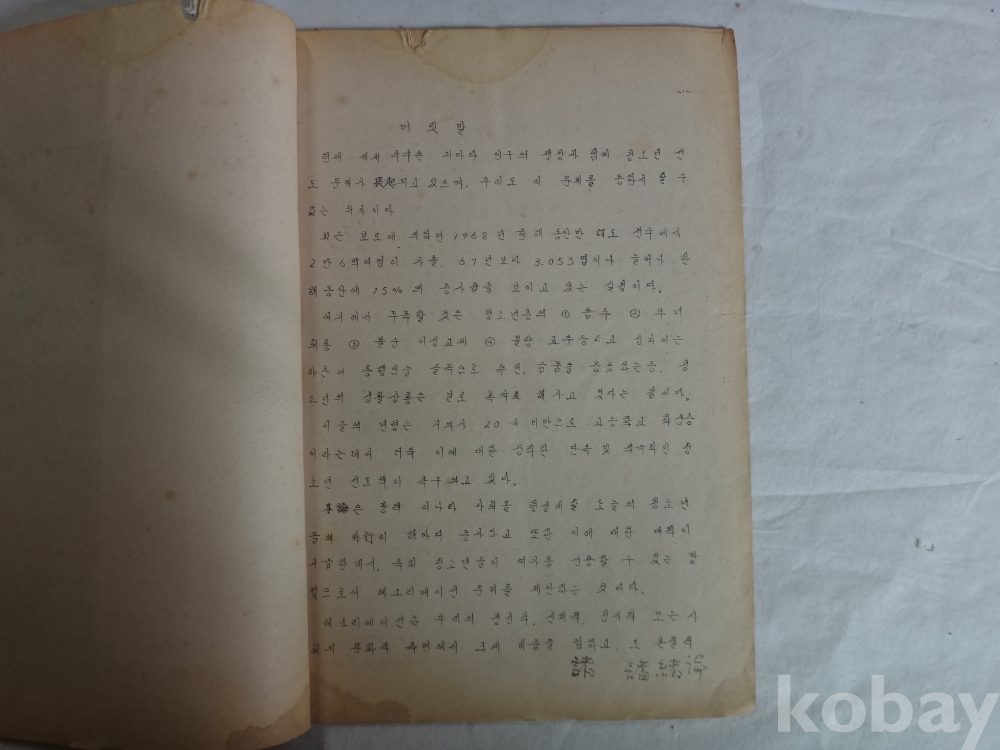 머 릿 말
현재 세계 각국은 저마다 인구의 팽창과 함께 청소년 선
도 문제가 되고 있으며, 우리도 이 문제를 등한시 할 수
없는 위치이다
최근 보도에 의하면 1968년 한해 동안만 해도 전국에서
2만 6백여명이 가출, 67년보다 3.053명이나 늘어나 한
해동안에 15%의 증가율을 보이고 있는 실정이다.
여기에서 주목할 것은 청소년층의 ① 음주 ② 부녀
희롱 ③ 불순 이성교제 ④ 불량 교우등이고 심지어는
야간의 통행인을 우선, 금품을 강요하는등, 청
소년의 생활상황은 날로 해가고 있다는 점이다.
이들의 연령은 거의가 20세 미만으로 고등학교 학생층
이라는데서 더욱 이에 대한 강력한 단속 및 적극적인 청
소년 선도책이 촉구되고 있다.
本論은 아니라 사회를 오늘의 청소년
들의 非行이 해마다 증가되고 또한 이에 대한 대책이
시급한데서, 특히 청소년들이 여가를 선용할 수 있는 방
법으로서 레크리에이션 문제를 제안하는 것이다.
레크리에이션은 우리의 정신적, 신체적, 정서적 또는 사
회의 문화적 측면에서 크게 비중을 점하고, 그 본질적
kobay